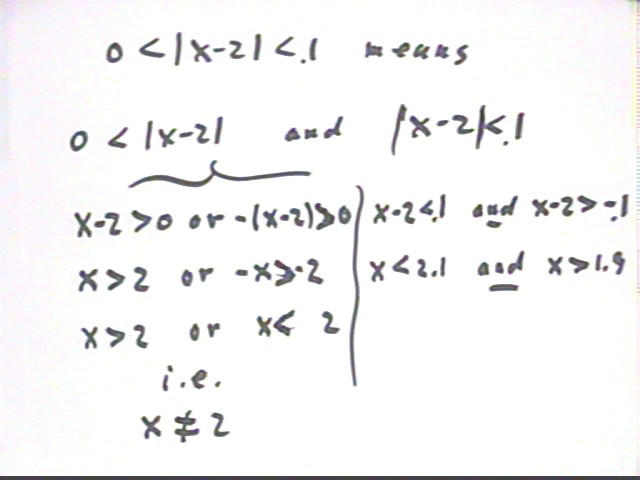 0 < |x-2| < .1 means
0 < |x-2| and |x-2| < .1
x-2 > 0 or -(x-2) > 0
x > 2 or -x > -2
x > 2 or x < 2
i.e.
x ≠ 2
x-2 < .1 and x-2 > -.1
x < 2.1 and x > 1.9